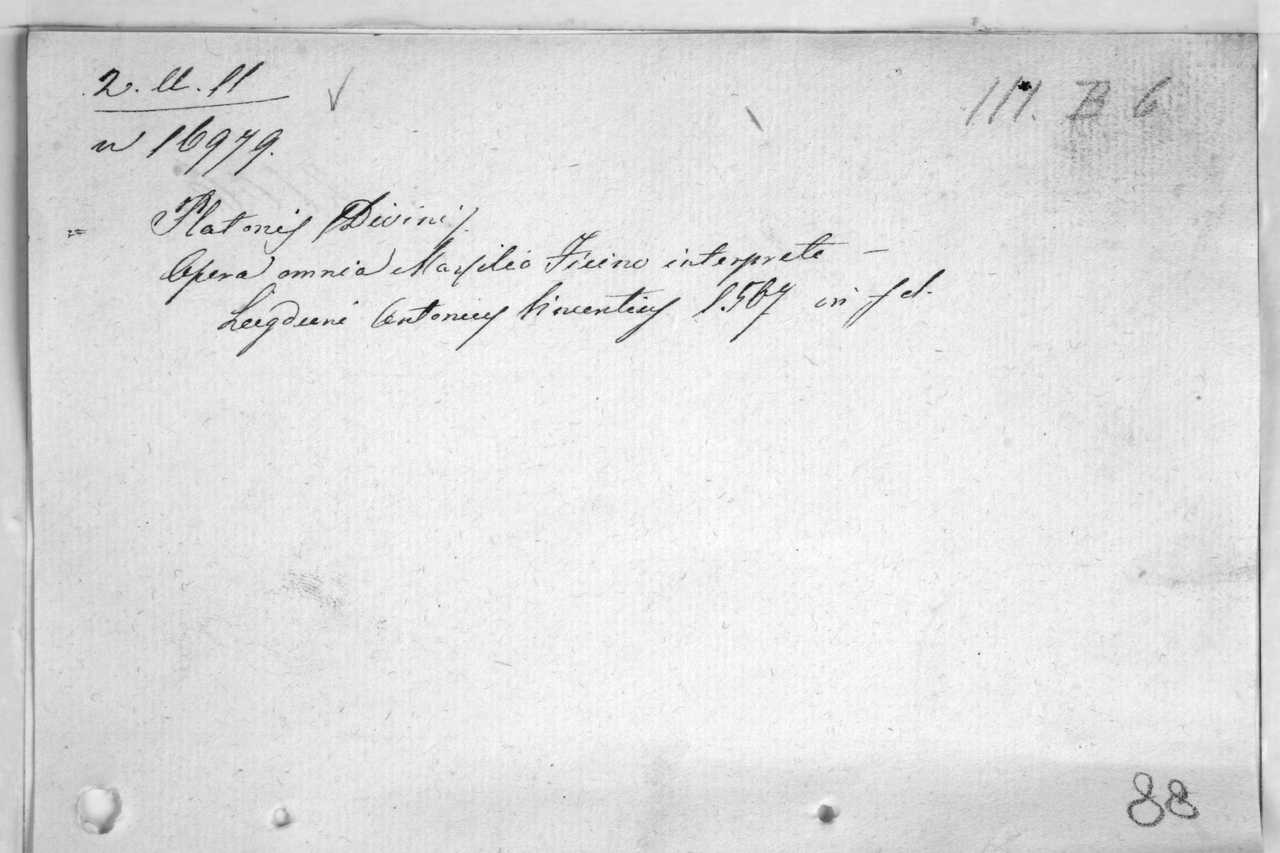 2. U. 11
III. B 6
n 16979.
= Platonis Divini
Opera omnia Marsilio Ficino interprete —
Lugduni Antonius Vincentius 1567 in fol.
88